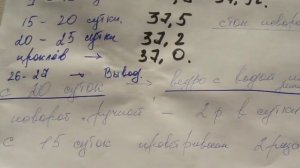 15 - 20 сутки. 37,5
20 - 25 сутки 37,2
проклёв → 37,0.
26-27 → Вывод.
с 20 суток ведро с водой
поворот ручной - 2 р в сутки
с 15 суток проветривания 2 раза